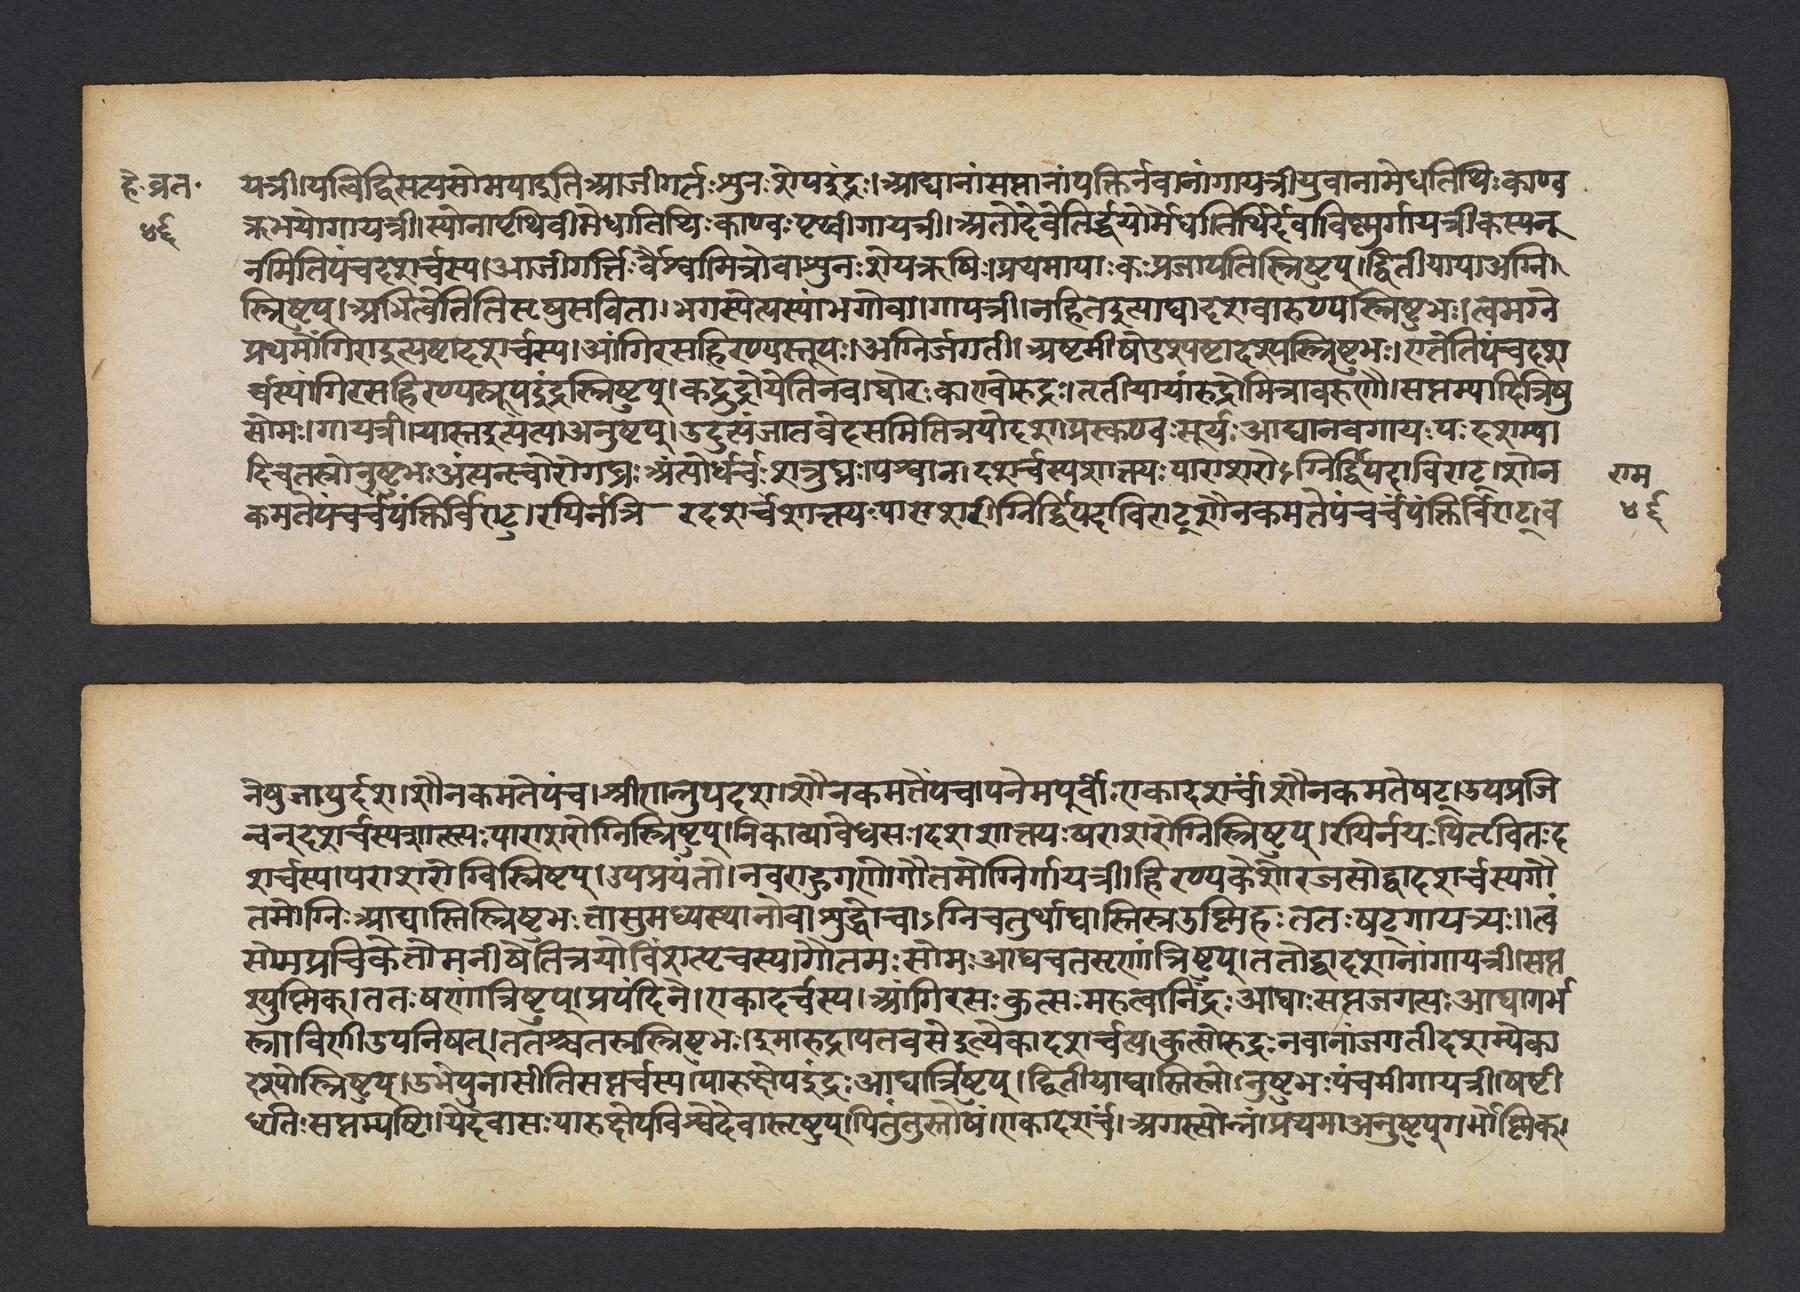 है॰व्रत॰
४६
यत्री।यच्चिद्धिसत्यसोमपाइतिआजीगर्तःशुनःशेपइंद्रः।आद्यानांसप्तानांपंक्तिर्नवानांगायत्रीयुवानामेधातिथिःकाण्व
ऋभवोगायत्री।स्योनापृथिवीमेधातिथिःकाण्वःपृथ्वीगायत्री।अतोदेवेतिर्द्वयोर्मेधातिथिर्देवाविष्णुर्गायत्रीकस्यनू
नमितिपंचदशर्चस्य।आजीगर्त्तिःवैश्वामित्रोवाशुनःशेपऋषिः।प्रथमायाःकःप्रजापतिस्त्रिष्टुप्।द्वितीयायाअग्नि
स्त्रिष्टुप्।अभित्वेतितिसृषुसविता।भगस्येत्यस्यांभगोवा।गायत्री।नहितेइत्याद्यादशवारुण्यस्त्रिष्टुभः।त्वमग्ने
प्रथमोंगिराइत्यष्टादशर्चस्य।आंगिरसहिरण्यस्तूपः।अग्निर्जगती।अष्टमीषोडश्यष्टादश्यस्त्रिष्टुभः।एतेतिपंचदश
र्चस्यांगिरसहिरण्यस्तूपइंद्रस्त्रिष्टुप्।कद्रुद्रायेतिनव।घौरःकाण्वोरुद्रः।तृतीयायांरुद्रोमित्रावरुणौ।सप्तम्यादित्रिषु
सोमः।गायत्री।यास्तइत्यंत्या।अनुष्टुप्।उदुत्यंजातवेदसमितित्रयोदश।प्रस्कण्वःसूर्यःआद्यानवगायःयःदशम्या
दिचतस्रोनुष्टुभःअंत्यस्तृचोरोगघ्नःअंत्योर्धर्चःशत्रुघ्नः।पश्वान।दशर्चस्यशात्त्क्यःपाराशरोऽग्निर्द्विपदाविराट्।शौन
कमतेपंचर्चंपंक्तिर्विराट्।रयिर्नचि रदशर्चंशात्त्क्यःपाराशरोग्निर्द्विपदाविराट्शौनकमतेपंचर्चंपंक्तिर्विराट्।व
राम
४६
नेषुजापुर्दश।शौनकमतेपंच।श्रीणन्नुपदश।शौनकमतेपंच।वनेमपूर्वीःएकादशर्चं।शौनकमतेषट्।उपप्रजि
न्वन्दशर्चस्यशात्त्क्यःपाराशरोग्निस्त्रिष्टुप्।निकाव्यावेधसः।दशशात्त्क्यःपराशरोग्निस्त्रिष्टुप्।रयिर्नयःपितृवित्तःद
शर्चस्य।पराशरोग्निस्त्रिष्टुप्।उपप्रयंतो।नवराहूगणोगौतमोग्निर्गायत्री।हिरण्यकेशोरजसोद्वादशर्चस्यगौ
तमोग्निःआद्यास्तिस्त्रिष्टुभःतासुमध्यस्थानोवाशुद्धोवाऽग्निचतुर्थाद्यास्तिस्रउष्णिहःततःषट्गायत्र्यः॥त्वं
सोमप्रचिकेतोमनीषेतित्रयोविंशत्यृचस्य।गौतमःसोमःआद्यचतसृणांत्रिष्टुप्।ततोद्वादशानांगायत्री।सप्त
श्युष्णिक्।ततःषणांत्रिष्टुप्।प्रपंदिने।एकादर्चस्य।आंगिरसःकुत्सःमरुत्वानिंद्रःआद्याःसप्तजगत्यःआद्यागर्भ
स्त्राविणीउपनिषत्।ततश्चतस्रस्त्रिष्टुभः।इमारुद्रायतवसेइत्येकादशर्च्चस्य।कुत्सोरुद्रःनवानांजगतीदशम्येका
दश्योस्त्रिष्टुप्।उभेपुनासीतिसप्तर्चस्य।पारुछेपइंद्रःआद्यात्रिष्टुप्।द्वितीयाद्यास्तिस्रो।नुष्टुभःपंचमीगायत्री।षष्टी
धृतिःसप्तम्यष्टि।येदेवासःपारुछेपविश्वेदेवास्त्रिष्टुप्।पितुंनुस्तोषं।एकादशर्चं।अगस्त्योन्नं।प्रथमाअनुष्टुप्गर्भोष्णिक्।